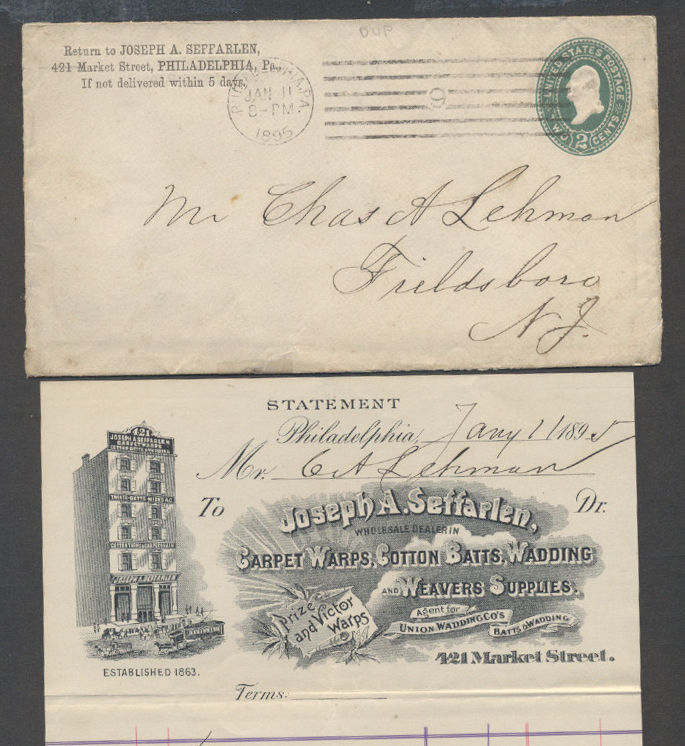 DUP
Return to JOSEPH A. SEFFARLEN,
421 Market Street, PHILADELPHIA, Pa.,
If not delivered within 5 days.
PHILADELPHIA, PA.
JAN 11
8-PM
1895
9
UNITED STATES POSTAGE
TWO 2 CENTS
Mr Chas A Lehman
Fieldsboro
N.J.
STATEMENT
Philadelphia, Jany 11 1895
Mr. C A Lehman
To Joseph A. Seffarlen, Dr.
WHOLESALE DEALER IN
CARPET WARPS, COTTON BATTS, WADDING
AND WEAVERS SUPPLIES.
Prize and Victor Warps
Agent for
UNION WADDING CO'S BATTS & WADDING
421 Market Street.
421
JOSEPH A. SEFFARLEN
CARPET WARPS
JOSEPH A. SEFFARLEN
ESTABLISHED 1863.
Terms: